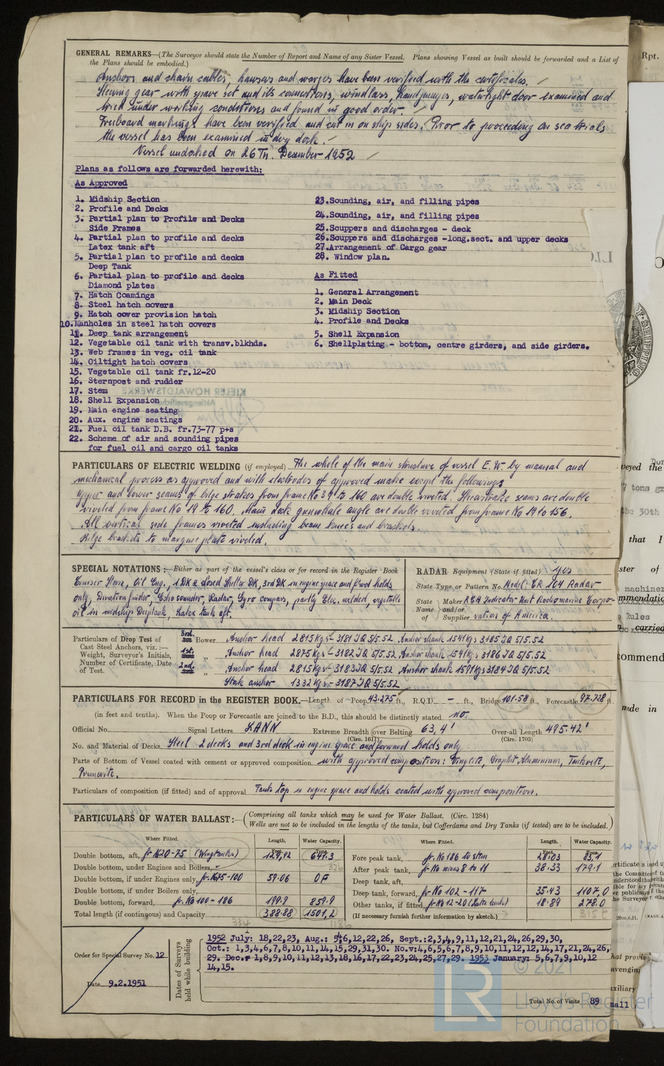 GENERAL REMARKS—(The Surveyor should state the Number of Report and Name of any Sister Vessel. Plans showing Vessel as built should be forwarded and a List of
the Plans should be embodied.)
Anchors and chain cables, hawsers and warps have been verified with the certificates.
Steering gear with spare set and its connections, windlass, hand pumps, watertight door examined and
tried under working conditions and found in good order.
Freeboard markings have been verified and cut in on ship sides. Prior to proceeding on sea trials
the vessel has been examined in dry dock.
Vessel undocked on 26Th. December 1952
Plans as follows are forwarded herewith:
As Approved
1. Midship Section
2. Profile and Decks
3. Partial plan to Profile and Decks
Side Frames
4. Partial plan to profile and decks
Latex tank aft
5. Partial plan to profile and decks
Deep Tank
6. Partial plan to profile and decks
Diamond plates
7. Hatch Coamings
8. Steel hatch covers
9. Hatch cover provision hatch
10. Manholes in steel hatch covers
11. Deep tank arrangement
12. Vegetable oil tank with transv.blkhds.
13. Web frames in veg. oil tank
14. Oiltight hatch covers
15. Vegetable oil tank fr.12-20
16. Sternpost and rudder
17. Stem
18. Shell Expansion
19. Main engine seating
20. Aux. engine seatings
21. Fuel oil tank D.B. fr.73-77 p+s
22. Scheme of air and sounding pipes
for fuel oil and cargo oil tanks
23. Sounding, air, and filling pipes
24. Sounding, air, and filling pipes
25. Scuppers and discharges - deck
26. Scuppers and discharges -long.sect. and upper decks
27. Arrangement of Cargo gear
28. Window plan.
As Fitted
1. General Arrangement
2. Main Deck
3. Midship Section
4. Profile and Decks
5. Shell Expansion
6. Shellplating - bottom, centre girders, and side girders.
KIELER HOWALDTSWERKE
PARTICULARS OF ELECTRIC WELDING (if employed) The whole of the main structure of vessel E.W. by manual and
mechanical process as approved and with electrodes of approved make except the followings
upper and lower seams of bilge strakes from frame No 39 to 160 are double riveted. Sheerstrake seams are double
riveted from frame No 19 to 160. Main deck gunwhale angle are double riveted from frame No 19 to 156.
All vertical side frames riveted including beam knees and brackets.
Bilge brackets to margin plate riveted.
SPECIAL NOTATIONS:—Either as part of the vessel's class or for record in the Register Book
Cruiser Stern, Oil Eng. 1 DK & Closed Shelter DK, 3rd DK in engine space and fward holds
only, Direction finder, Echo sounder, Radar, Gyro compass, partly Elec. welded, vegetable
oil in midship Deeptank, Latex tank aft.
RADAR Equipment (State if fitted) yes
State Type or Pattern No. Model: CR 104 Radar
State Maker RCA Indicator Unit Radiomarine Corpo-
Name and/or
of Supplier ration of America.
Particulars of Drop Test of
Cast Steel Anchors, viz.:—
Weight, Surveyor's Initials,
Number of Certificate, Date
of Test.
3rd. Bower Anchor head 2815 Kgs - 3181 JQ 5/5.52 Anchor shank 1541 Kgs 3185 JQ 5/5.52
1st. " Anchor head 2875 Kgs - 3182 JQ 5/5.52 Anchor shank 1549 Kgs 3186 JQ 5/5.52
2nd. " Anchor head 2815 Kgs - 3183 JQ 5/5.52 Anchor shank 1591 Kgs 3184 JQ 5/5.52
Stock anchor 1332 Kgs - 3187 JQ 5/5.52
PARTICULARS FOR RECORD in the REGISTER BOOK.—Length of Poop 43.275 ft., R.Q.D. – ft., Bridge 101.58 ft., Forecastle 97.728 ft.
(in feet and tenths). When the Poop or Forecastle are joined to the B.D., this should be distinctly stated no.
Official No. Signal Letters Extreme Breadth over Belting 63,4' Over-all Length 495.42'
(Circ. 1611) (Circ. 1703)
No. and Material of Decks Steel 2 decks and 3rd deck in engine space and forward holds only
Parts of Bottom of Vessel coated with cement or approved composition with approved composition:
Particulars of composition (if fitted) and of approval Tank top in engine space and holds coated with approved composition.
PARTICULARS OF WATER BALLAST:—(Comprising all tanks which may be used for Water Ballast. (Circ. 1284)
Wells are not to be included in the lengths of the tanks, but Cofferdams and Dry Tanks (if tested) are to be included.)
Where Fitted. Length. Water Capacity.
Double bottom, aft, fr. No 20-75 (Wingtanks) 129,92 641.3
Double bottom, under Engines and Boilers,
Double bottom, if under Engines only, fr. No 75-100 59.06 OF
Double bottom, if under Boilers only,
Double bottom, forward, fr. No 100-186 199.9 859.9
Total length (if continuous) and Capacity 388.88 1501,2
Where Fitted. Length. Water Capacity.
Fore peak tank, fr. No 186 to stem 28.03 85.1
After peak tank, fr. No minus 8 to 11 38.33 179.1
Deep tank, aft,
Deep tank, forward, fr. No 102 - 117 35.43 1107,0
Other tanks, if fitted, fr. No 12-20 18.89 278.0
(If necessary furnish further information by sketch.)
Order for Special Survey No. 12
Date 9.2.1951
Dates of Surveys
held while building
1952 July: 18,22,23, Aug.: 5,6,12,22,26, Sept.:2,3,4,9,11,12,21,24,26,29,30,
Oct.: 1,3,4,6,7,8,10,11,14,15,29,31,30. No.v:4,6,5,6,7,8,9,10,11,12,12,14,17,21,24,26,
29. Dec.: 1,8,9,10,11,12,13,18,16,17,22,23,24,25,27,29. 1953 January: 5,6,7,9,10,12
14,15.
Total No. of Visits 89
© 2021
Lloyd's Register
Foundation